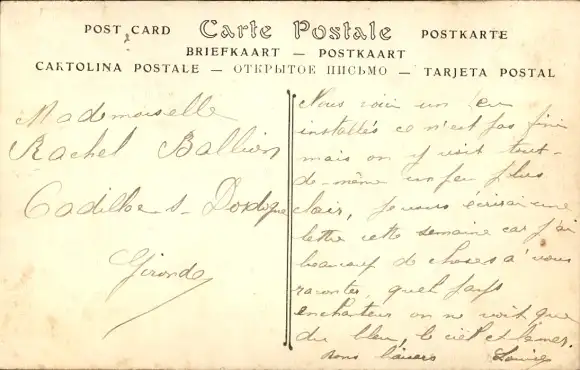 POST CARD Carte Postale POSTKARTE
BRIEFKAART — POSTKAART
CARTOLINA POSTALE — ОТКРЫТОЕ ПИСЬМО — TARJETA POSTAL
Mademoiselle
Rachel Ballion
Cadilhac s- Dordogne
Gironde
Nous voici un peu
installés ce n'est pas fini
mais on y voit tout-
de-même un peu plus
clair, je vous écrirai une
lettre cette semaine car j'ai
beaucoup de choses à vous
raconter, quel pays
enchanteur on ne voit que
du bleu, le ciel et la mer.
bons baisers